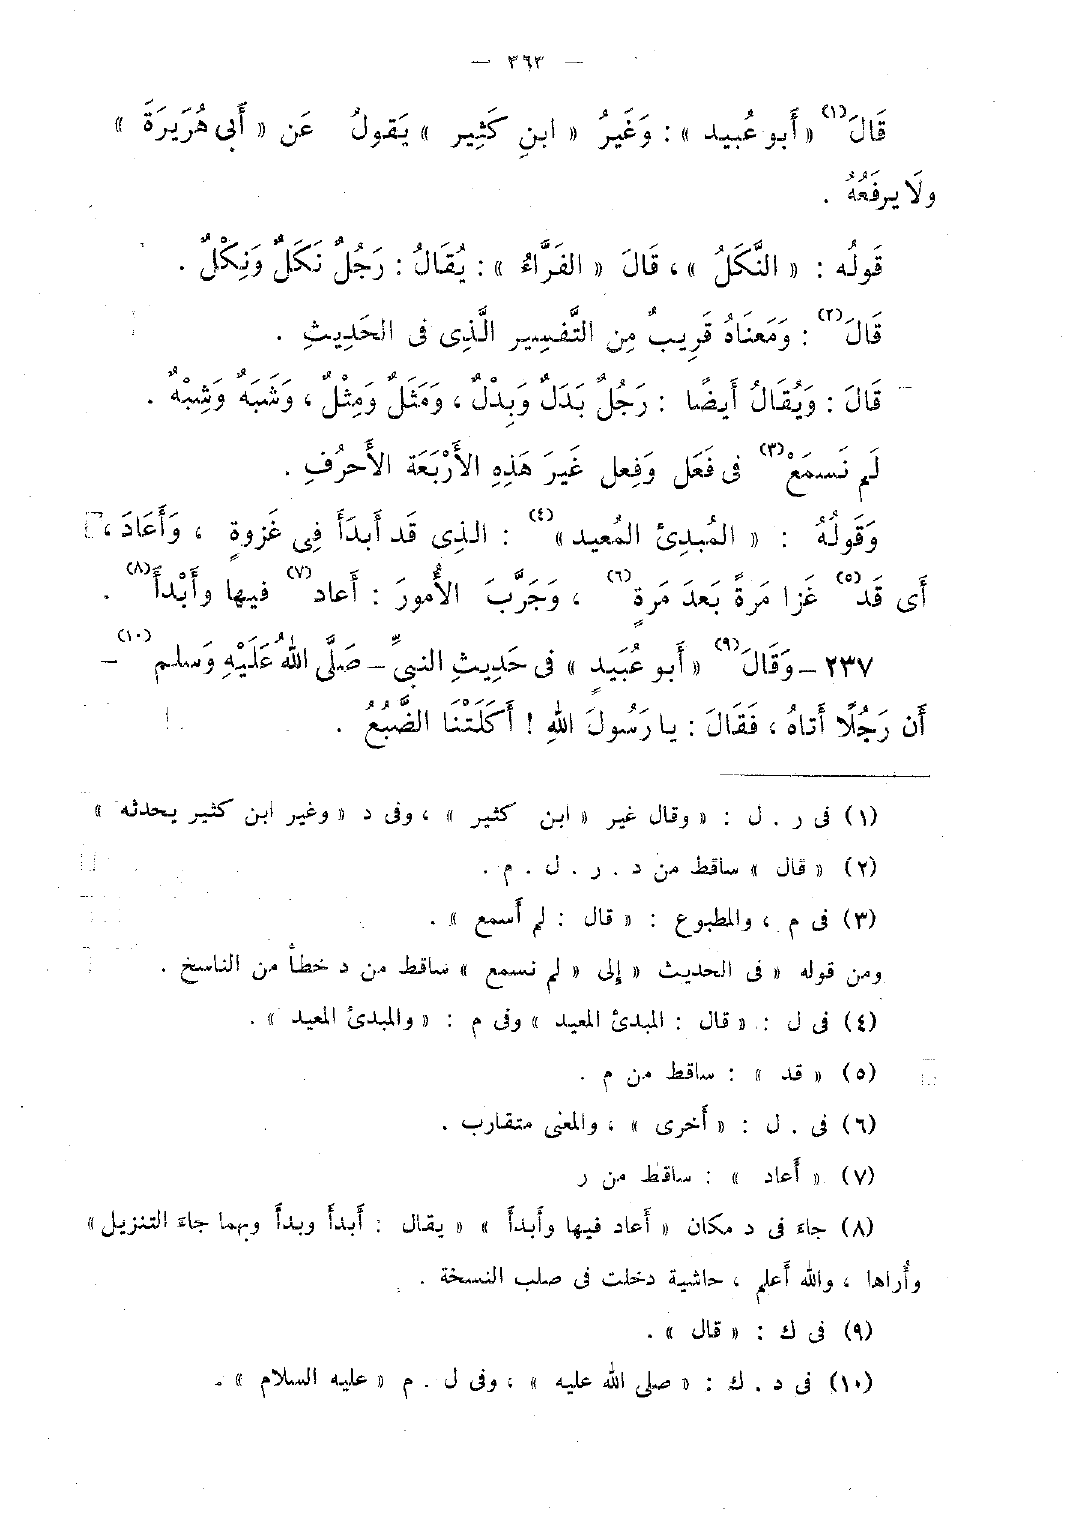 — ٣٦٣ —
قَالَ(١) « أَبو عُبيد » : وَغَيرُ « ابنِ كَثِير » يَقولُ عَن « أَبى هُرَيرَةَ »
ولَا يرفَعُهُ .
قَولُه : « النَّكَلُ » ، قَالَ « الفَرَّاءُ » : يُقَالُ : رَجُلٌ نَكَلٌ وَنِكْلٌ .
قَالَ(٢) : وَمَعنَاهُ قَرِيبٌ مِن التَّفسِير الَّذِى فى الحَدِيثِ .
قَالَ : وَيُقَالُ أَيضًا : رَجُلٌ بَدَلٌ وَبِدْلٌ ، وَمَثَلٌ وَمِثْلٌ ، وَشَبَهٌ وَشِبْهٌ .
لَم نَسمَعْ(٣) فى فَعَل وَفِعل غَيرَ هَذِهِ الأَرْبَعَة الأَحرُفِ .
وَقَولُهُ : « المُبدِئ المُعيد »(٤) : الذِى قَد أَبدَأَ فِى غَزوةٍ ، وَأَعَادَ ،
أَى قَد(٥) غَزا مَرةً بَعدَ مَرةٍ(٦) ، وَجَرَّبَ الأُمورَ : أَعاد(٧) فيها وأَبْدأَ(٨) .
٢٣٧ – وَقَالَ(٩) « أَبو عُبَيدٍ » فى حَدِيثِ النبىِّ – صَلَّى اللهُ عَلَيْهِ وَسَلم(١٠) –
أَن رَجُلًا أَتاهُ ، فَقَالَ : يا رَسُولَ اللهِ ! أَكَلَتْنَا الضَّبُعُ .
(١) فى ر . ل : « وقال غير « ابن كثير » ، وفى د « وغير ابن كثير يحدثه »
(٢) « قال » ساقط من د . ر . ل . م .
(٣) فى م ، والمطبوع : « قال : لم أَسمع » .
ومن قوله « فى الحديث » إلى « لم نسمع » ساقط من د خطأ من الناسخ .
(٤) فى ل : « قال : المبدئ المعيد » وفى م : « والمبدئ المعيد » .
(٥) « قد » : ساقط من م .
(٦) فى . ل : « أَخرى » ، والمعنى متقارب .
(٧) « أَعاد » : ساقط من ر
(٨) جاء فى د مكان « أَعاد فيها وأَبدأَ » « يقال : أَبدأَ وبدأَ وبهما جاءَ التنزيل »
وأُراها ، والله أَعلم ، حاشية دخلت فى صلب النسخة .
(٩) فى ك : « قال » .
(١٠) فى د . ك : « صلى الله عليه » ، وفى ل . م « عليه السلام » .